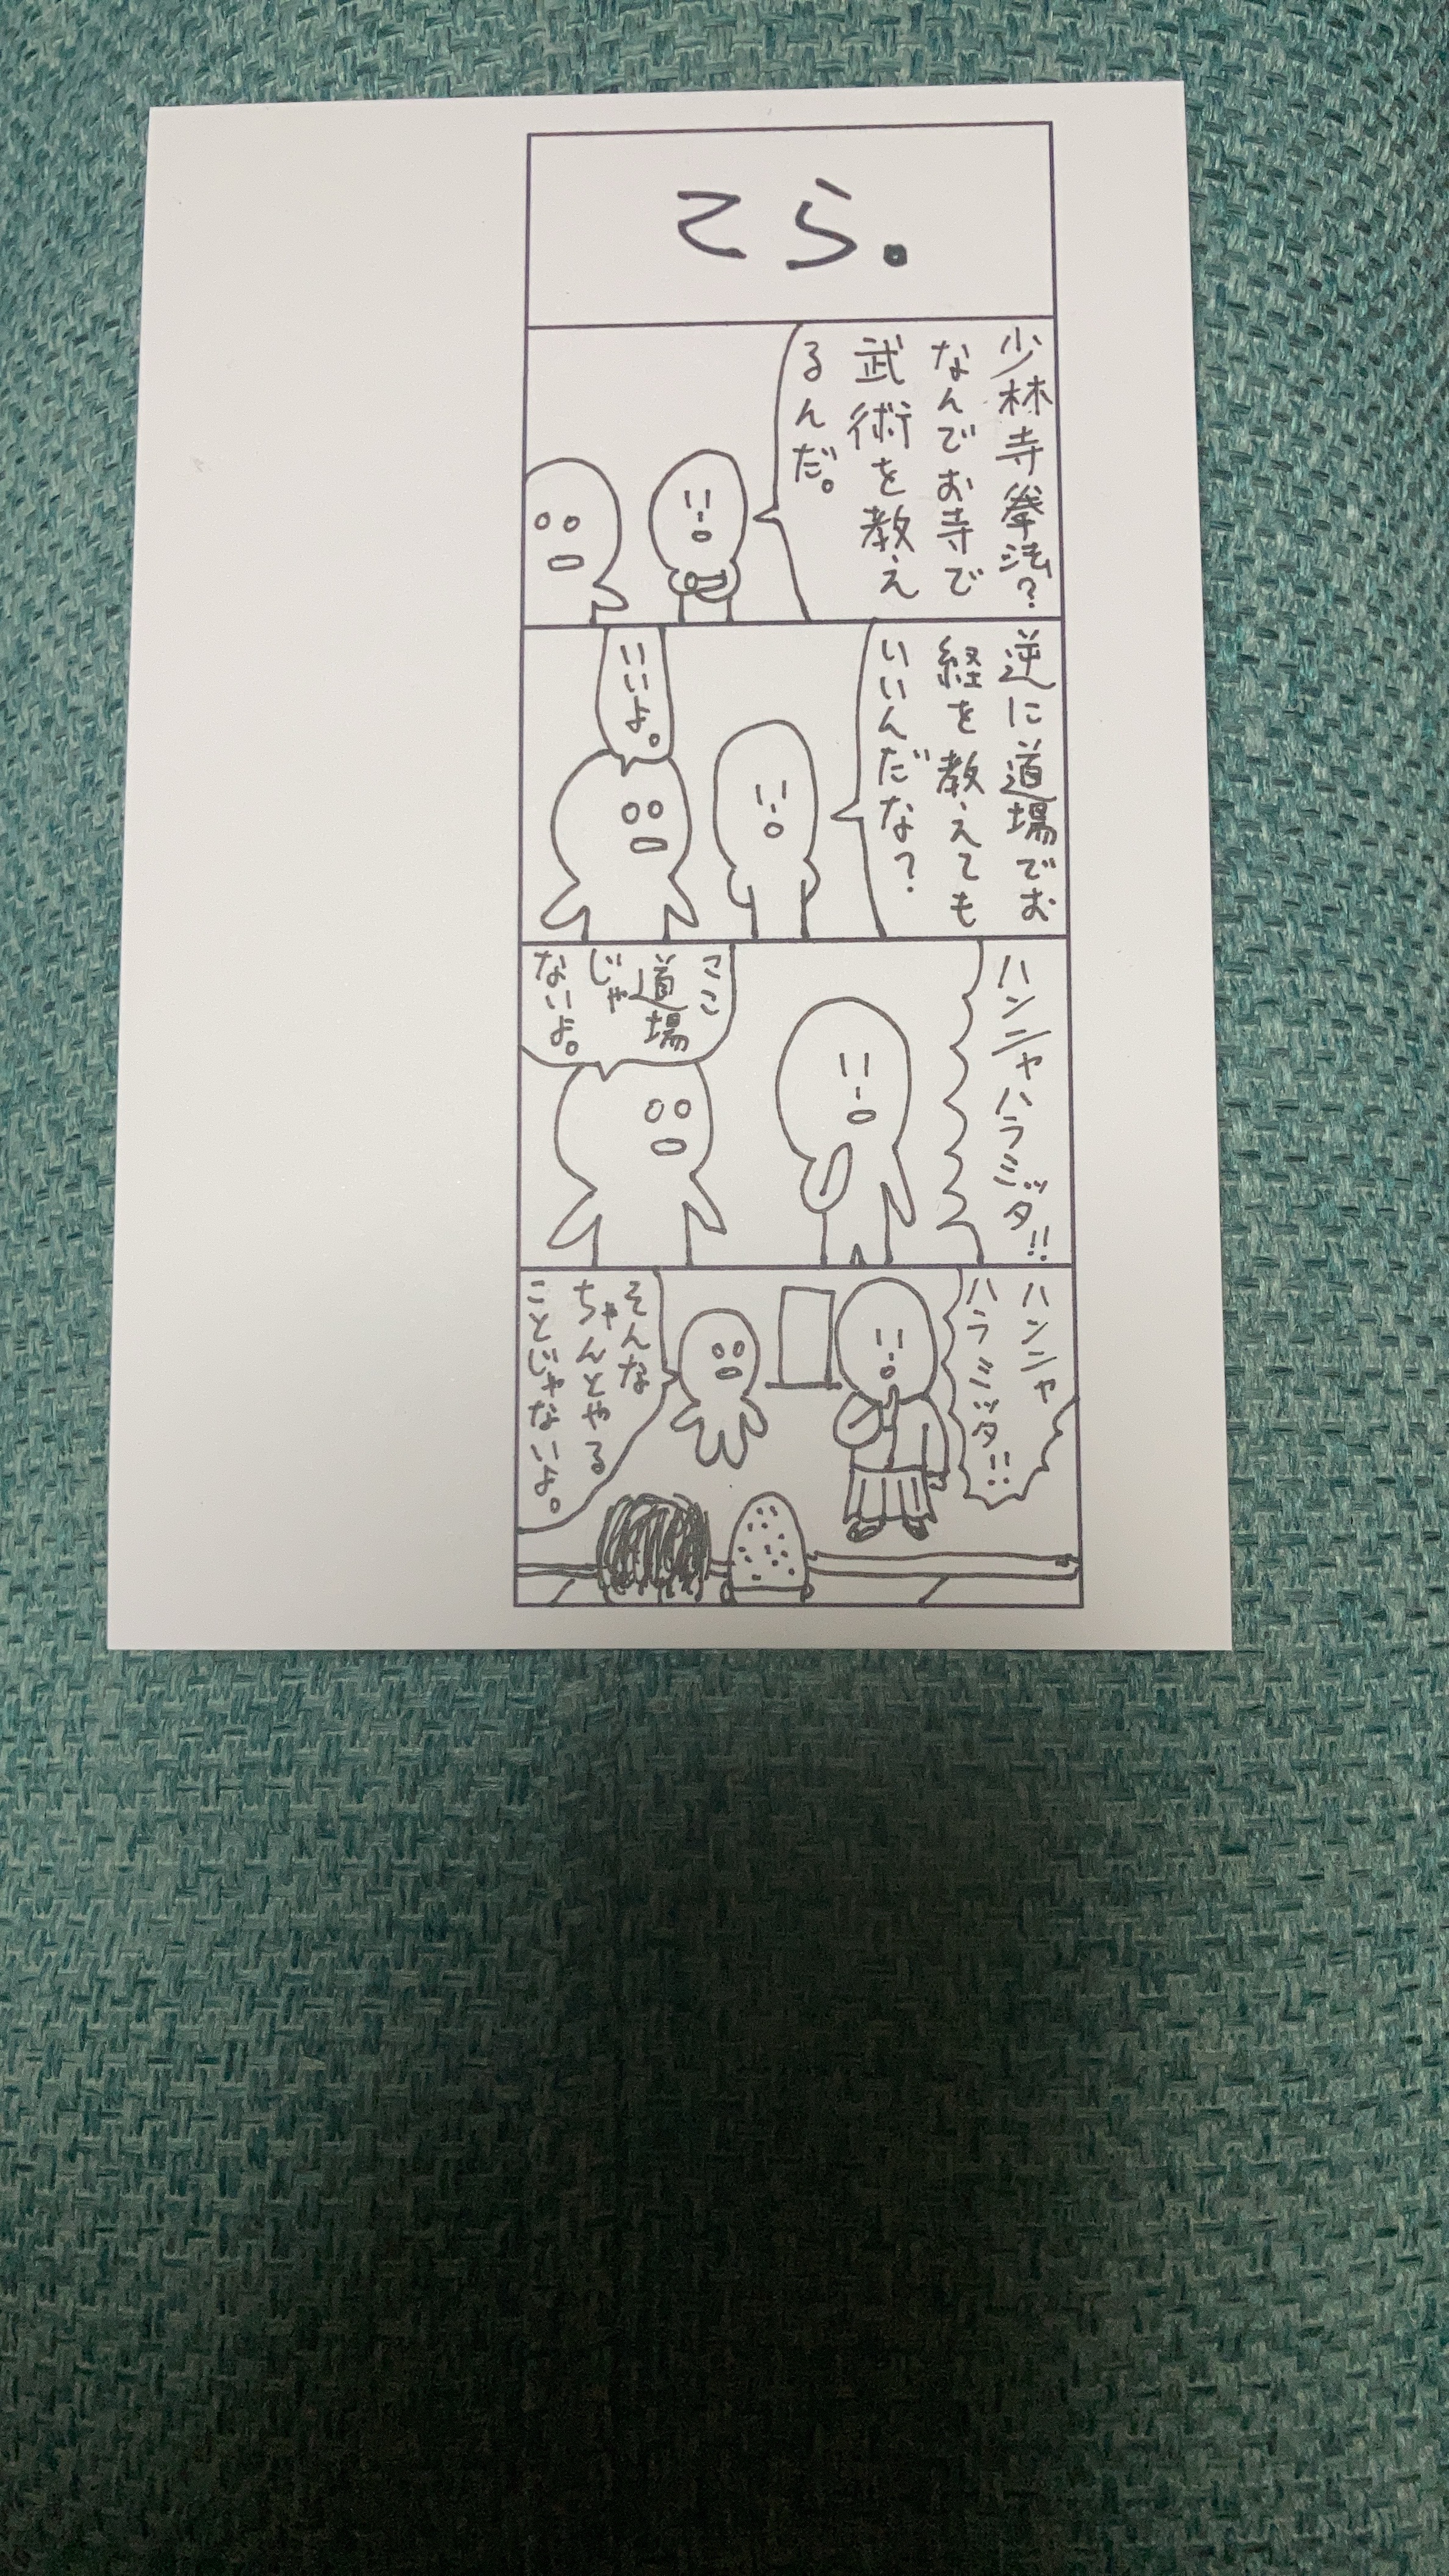 てら。
少林寺拳法?
なんでお寺で
武術を教え
るんだ。
逆に道場でお
経を教えても
いいんだな?
いいよ。
ハンニャハラミッタ!!
ここ
道場
じゃ
ないよ。
ハンニャ
ハラミッタ!!
そんな
ちゃんとやる
ことじゃないよ。